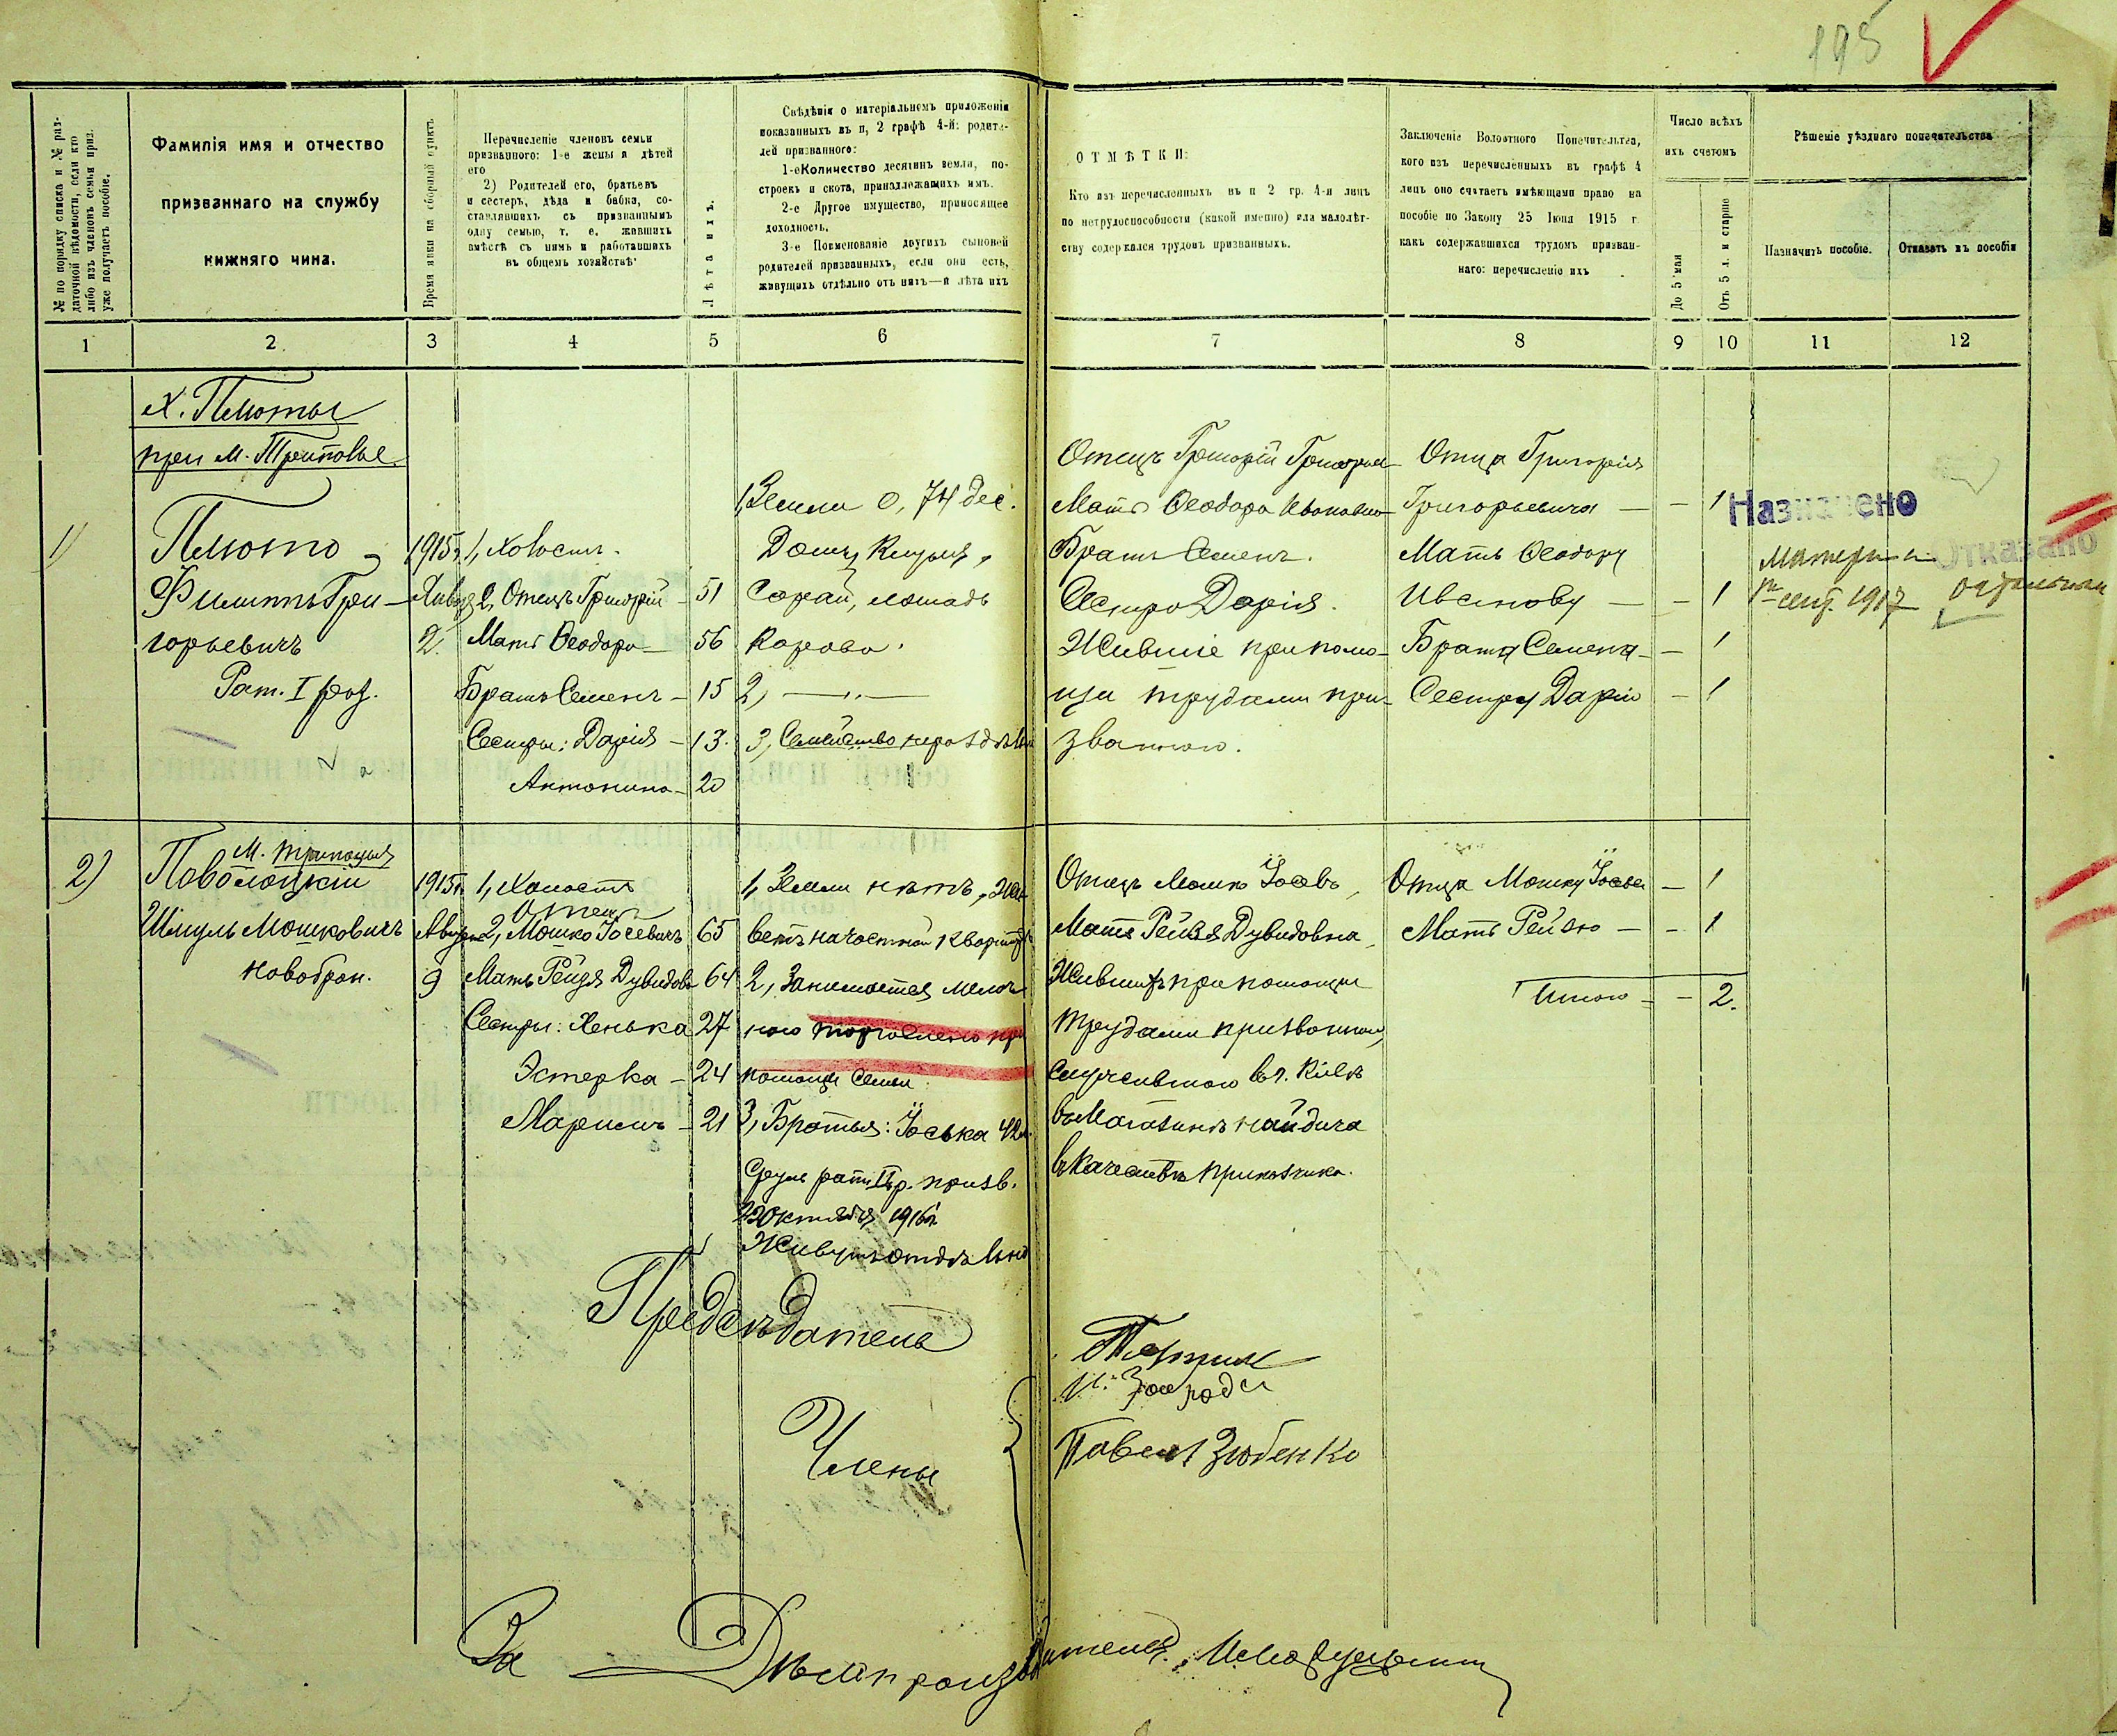 195
№ по порядку списка и № раз-
даточной вѣдомости, если кто
либо изъ членовъ семьи приз.
уже получаетъ пособіе.
Фамилія имя и отчество
призваннаго на службу
нижняго чина.
Время явки на сборный пунктъ
Перечисленіе членовъ семьи
призваннаго: 1-е жены и дѣтей
его
2) Родителей его, братьевъ
и сестеръ, дѣда и бабка, со-
ставлявшихъ съ призваннымъ
одну семью, т. е. жившихъ
вмѣстѣ съ нимъ и работавшихъ
въ общемъ хозяйствѣ
Лѣта ихъ.
Свѣдѣнія о матеріальномъ приложеніи
показанныхъ въ п, 2 графѣ 4-й: родите-
лей призваннаго:
1-е Количество десятинъ земли, по-
строекъ и скота, принадлежащихъ имъ.
2-е Другое имущество, приносящее
доходность.
3-е Поименованіе другихъ сыновей
родителей призванныхъ, если они есть,
живущихъ отдѣльно отъ нихъ—и лѣта ихъ
ОТМѢТКИ:
Кто изъ перечисленныхъ въ п 2 гр. 4-й лицъ
по нетрудоспособности (какой именно) или малолѣт-
ству содержался трудомъ призванныхъ.
Заключеніе Волостного Попечительства,
кого изъ перечисленныхъ въ графѣ 4
лицъ оно считаетъ имѣющими право на
пособіе по Закону 25 Іюня 1915 г.
какъ содержавшихся трудомъ призван-
наго: перечисленіе ихъ
Число всѣхъ
ихъ счетомъ
До 5 мая
Отъ 5 л. и старше
Рѣшеніе уѣзднаго попечительства
Назначить пособіе.
Отказать въ пособіи
1 2 3 4 5 6 7 8 9 10 11 12
х. Плюты
при м. Триполье
1)
Плюто
Филиппъ Гри-
горьевичъ
Рат. I раз.
1915 г.
Января
2.
1, Холостъ.
2, Отецъ Григорій — 51
Мать Ѳеодора — 56
Братъ Семенъ — 15
Сестры: Дарія — 13.
Антонина — 20
1, Земли 0,74 дес.
Домъ, Клуня,
Сарай, лошадь
Корова.
2, — „ —
3, Семейство нераздѣльн
Отецъ Григорій Григорьев
Мать Ѳеодора Ивановна
Братъ Семенъ.
Сестра Дарія.
Жившіе при помо-
щи трудами при-
званнаго.
Отца Григорія
Григорьевича — — 1
Мать Ѳеодору
Иванову — — 1
Брата Семена — — 1
Сестру Дарію — 1
Назначено
Матери
1917
Отказано
остальнымъ
2)
м. Триполья
Поволоцкій
Шмуль Мошковичъ
новобран.
1915 г.
Августа
9
1, Холостъ
Отецъ
2, Мошко Іосевичъ 65
Мать Рейзя Дувидова 64
Сестры: Хенька 27
Эстерка — 24
Маримъ — 21
1, Земли нѣтъ, жи-
ветъ на частной квартирѣ
2, Занимается мелоч
ною торговлею при
помощи Семьи
3, Братья: Іоська 42 л.
Сруль рат. II р. призв.
октября 1916 г.
Живутъ отдѣльно
Отецъ Мошко Іосевъ,
Мать Рейзя Дувидовна,
Жившихъ при помощи
трудами призваннаго,
служившаго въ г. Кіевѣ
въ Магазинѣ Найдича
въ Качествѣ приказчика.
Отца Мошку Іосева — 1
Мать Рейзю — — 1
Итого — — 2.
Предсѣдатель
Члены
Павелъ Зюбенко
За Дѣлопроизводителя